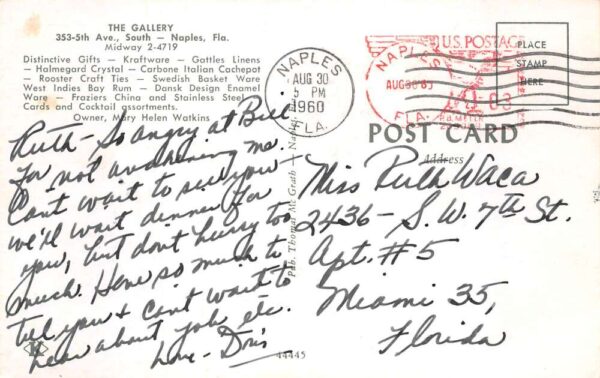 THE GALLERY
353-5th Ave., South — Naples, Fla.
Midway 2-4719
Distinctive Gifts — Kraftware — Gattles Linens
— Halmegard Crystal — Carbone Italian Cachepot
— Rooster Craft Ties — Swedish Basket Ware
West Indies Bay Rum — Dansk Design Enamel
Ware — Fraziers China and Stainless Steel
Cards and Cocktail assortments.
Owner, Mary Helen Watkins
NAPLES
AUG 30
5 PM
1960
FLA.
U.S. POSTAGE
NAPLES
AUG 30 60
FLA.
PLACE
STAMP
HERE
POST CARD
Address
Ruth - So angry at Bill
for not awakening me.
Can't wait to see you
we'll wait dinner for
you, but don't hurry too
much. Have so much to
tell you & can't wait to
hear about job, etc.
Love - Doris
Miss Ruth Waca
2436 - S. W. 7th St.
Apt. #5
Miami 35,
Florida
Pub. Thomas Mc Grath — Naples
44445